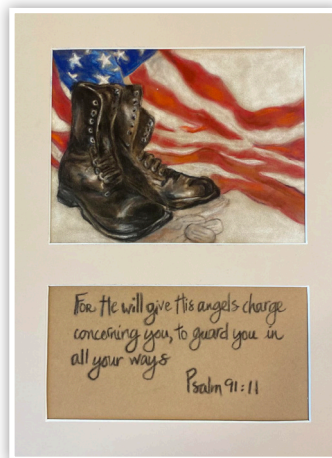 For He will give His angels charge
concerning you, to guard you in
all your ways
Psalm 91:11